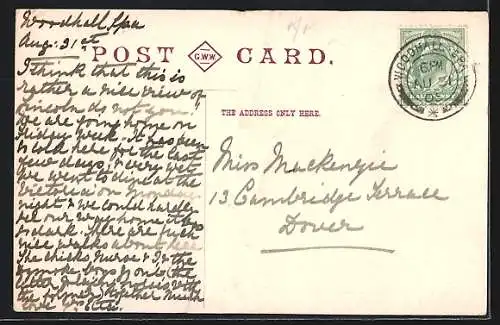 Woodhall Spa
Aug: 31st
POST CARD.
G.W.W.
THE ADDRESS ONLY HERE.
I think that this is
rather a nice view of
Lincoln do not you?
We are going home on
Friday week. It has been
so cold here for the last
few days, & very wet
We went to dine at the
Victoria on Monday
night & we could hardly
see our way home it was
so dark. There are such
nice walks about here
The chicks, Nurse & I
the
love
Miss Mackenzie
13 Cambridge Terrace
Dover
WOODHALL SPA
6 PM
AU 31
05